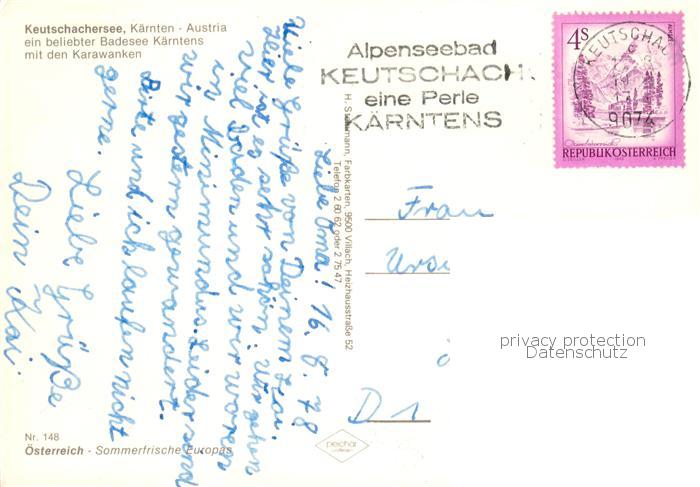 Keutschachersee, Kärnten · Austria
ein beliebter Badesee Kärntens
mit den Karawanken
Alpenseebad
KEUTSCHACH
eine Perle
KÄRNTENS
KEUTSCHACH
9074
4S
REPUBLIK ÖSTERREICH
Liebe Oma! 16. 8. 78
Viele Grüße von Deinem Kai.
Hier ist es sehr schön. Wir gehen
viel baden und wir waren
in Minimundus. Leider sind
wir gestern gewandert.
Birte und ich laufen nicht
gerne. Liebe Grüße
Dein Kai
Farbkarten, 9500 Villach, Heizhausstraße 52
Telefon 2 60 63 oder 2 75 47
Frau
Urs
D 1
privacy protection
Datenschutz
Nr. 148
Österreich - Sommerfrische Europas